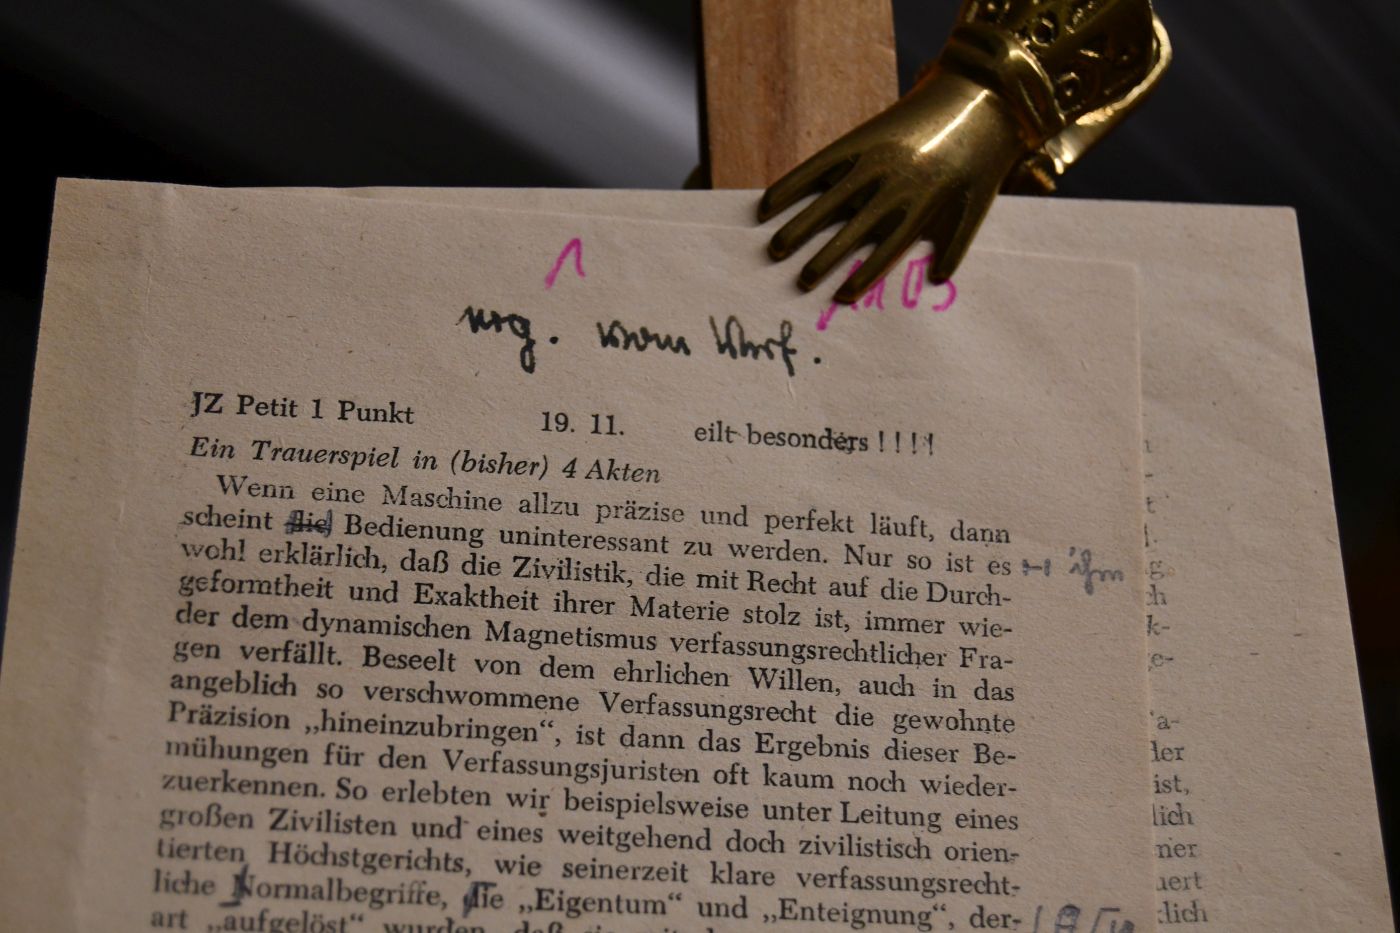 vom Verf.
JZ Petit 1 Punkt 19. 11. eilt besonders ! ! ! !
Ein Trauerspiel in (bisher) 4 Akten
Wenn eine Maschine allzu präzise und perfekt läuft, dann
scheint die Bedienung uninteressant zu werden. Nur so ist es
ihm
wohl erklärlich, daß die Zivilistik, die mit Recht auf die Durch-
geformtheit und Exaktheit ihrer Materie stolz ist, immer wie-
der dem dynamischen Magnetismus verfassungsrechtlicher Fra-
gen verfällt. Beseelt von dem ehrlichen Willen, auch in das
angeblich so verschwommene Verfassungsrecht die gewohnte
Präzision „hineinzubringen“, ist dann das Ergebnis dieser Be-
mühungen für den Verfassungsjuristen oft kaum noch wieder-
zuerkennen. So erlebten wir beispielsweise unter Leitung eines
großen Zivilisten und eines weitgehend doch zivilistisch orien-
tierten Höchstgerichts, wie seinerzeit klare verfassungsrecht-
liche Normalbegriffe, die „Eigentum“ und „Enteignung“, der-
art „aufgelöst“ wurden, daß sie
der
ist,
lich